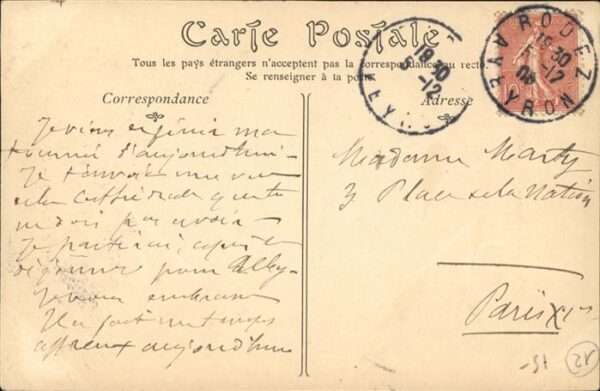 Carte Postale
Tous les pays étrangers n'acceptent pas la correspondance au recto.
Se renseigner à la poste
Correspondance
Adresse
Je viens de finir ma
tournée d'aujourd'hui –
Je t'envoie une vue
de la Cathédrale que tu
ne dois pas avoir –
Je partirai, après le
déjeuner pour Alby –
Je vous embrasse
Il a fait un temps
affreux aujourd'hui
Madame Marty
3 Place de la Nation
Paris
RODEZ
AVEYRON
18 30
-12
12